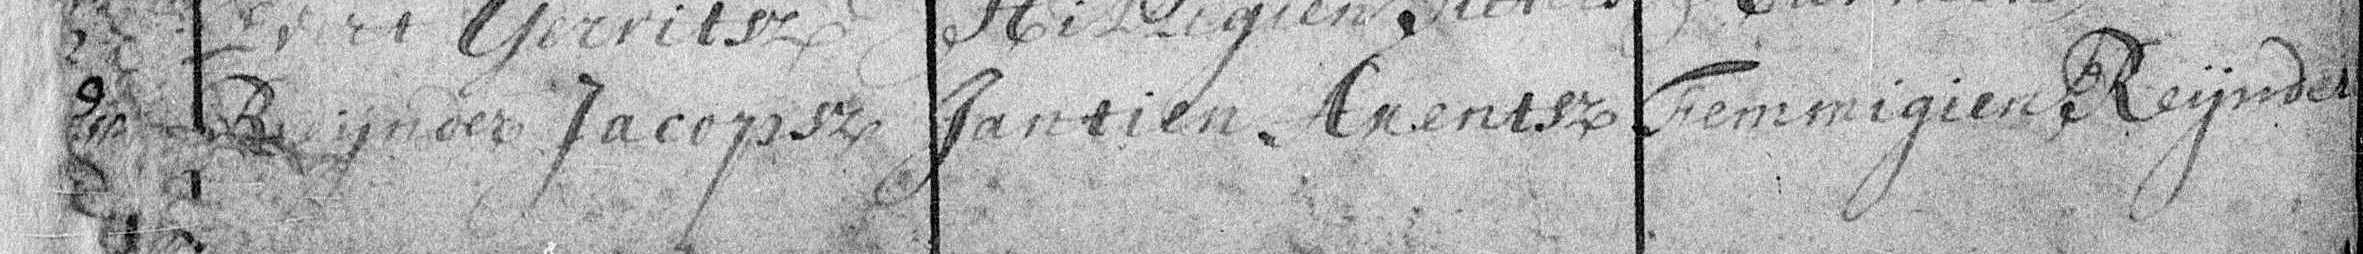 Evert Gerritsz Hilligien
Reijnder Jacopsz Jantien Arentsz Femmigien Reijnder